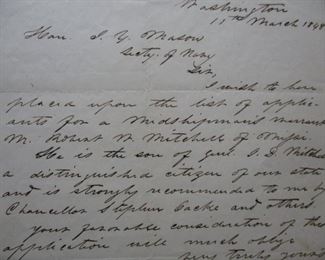 Washington
11th March 1848
Hon. J. Y. Mason
Secty. of Navy
Sir,
I wish to have
placed upon the list of applic-
ants for a Midshipman's warrant
Mr. Robert W. Mitchell of Missi.
He is the son of Genl.
a distinguished citizen of our state
and is strongly recommended to me by
Chancellor Stephen Cocke and others
your favorable consideration of the
application will much oblige
very truly yours